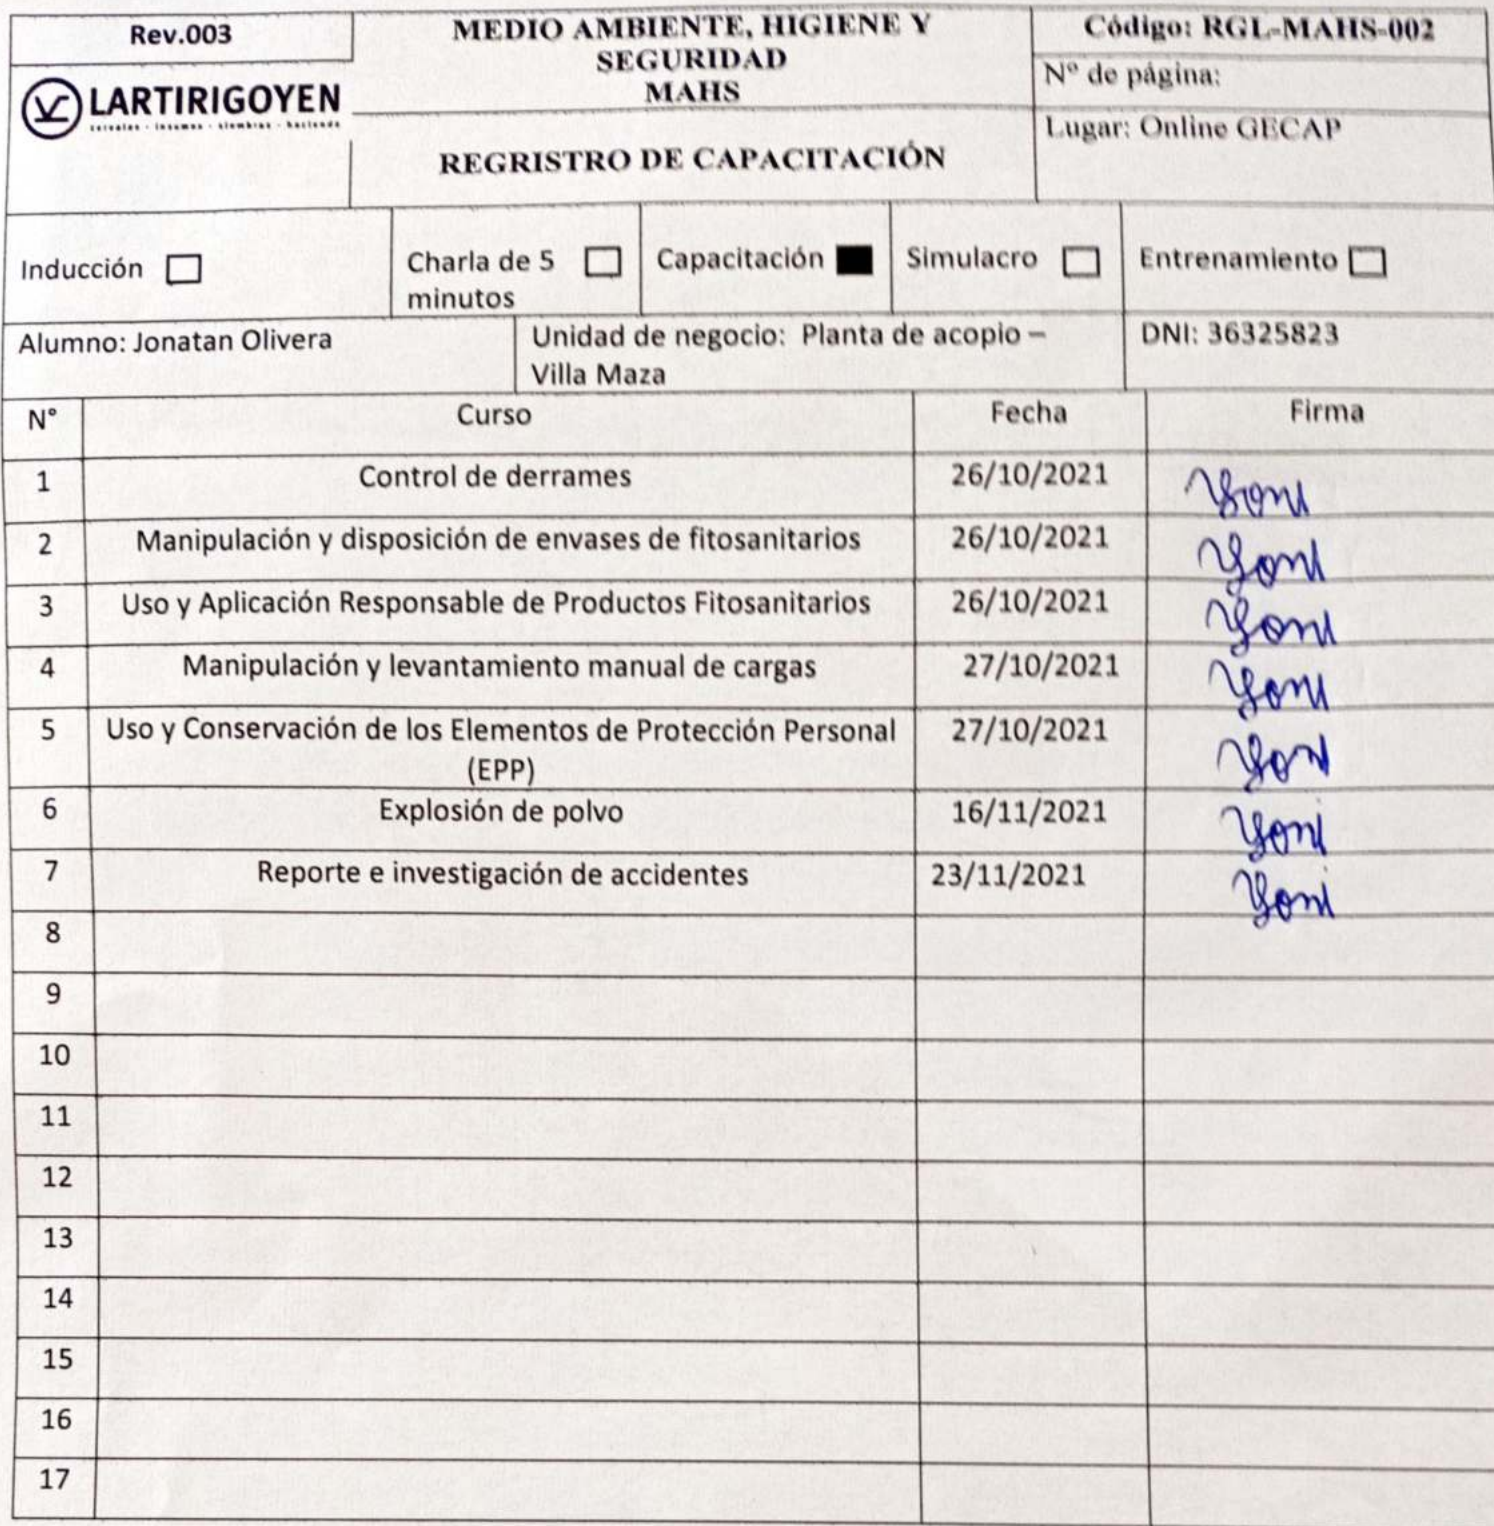 Rev.003
MEDIO AMBIENTE, HIGIENE Y
SEGURIDAD
MAHS
Código: RGL-MAHS-002
Nº de página:
LARTIRIGOYEN
cereales · insumos · siembras · hacienda
Lugar: Online GECAP
REGRISTRO DE CAPACITACIÓN
Inducción
Charla de 5
minutos
Capacitación
Simulacro
Entrenamiento
Alumno: Jonatan Olivera
Unidad de negocio: Planta de acopio –
Villa Maza
DNI: 36325823
N° Curso Fecha Firma
1 Control de derrames 26/10/2021 Yoni
2 Manipulación y disposición de envases de fitosanitarios 26/10/2021 Yoni
3 Uso y Aplicación Responsable de Productos Fitosanitarios 26/10/2021 Yoni
4 Manipulación y levantamiento manual de cargas 27/10/2021 Yoni
5 Uso y Conservación de los Elementos de Protección Personal 27/10/2021 Yoni
(EPP)
6 Explosión de polvo 16/11/2021 Yoni
7 Reporte e investigación de accidentes 23/11/2021 Yoni
8
9
10
11
12
13
14
15
16
17